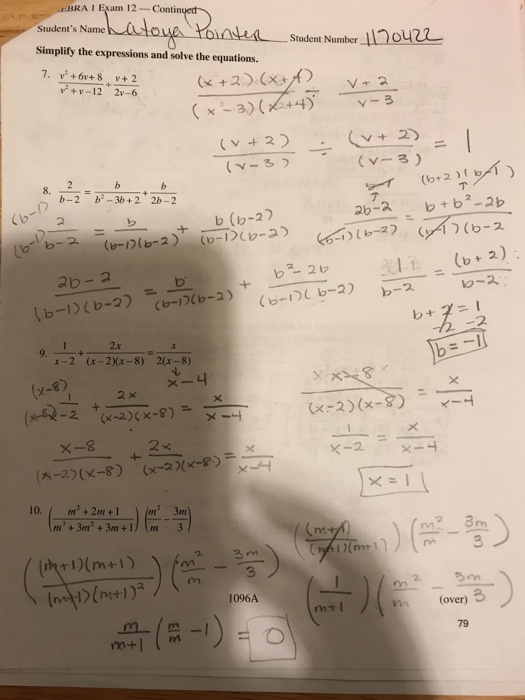 EBRA I Exam 12 — Continued
Student's Name Latoya Pointer Student Number 1170422
Simplify the expressions and solve the equations.
7. v² + 6v + 8 / v² + v – 12 ÷ v + 2 / 2v – 6
(x + 2) (x + 4) / (x – 3) (x + 4) ÷ v + 2 / v – 3
(v + 2) / (v – 3) ÷ (v + 2) / (v – 3) = 1
8. 2 / b – 2 = b / b² – 3b + 2 + b / 2b – 2
(b+2)(b-1)
2b-2 / (b-1)(b-2) = b + b² - 2b / (b-1)(b-2
(b-1) 2 / (b-1) b-2 = b / (b-1)(b-2) + b (b-2) / (b-1)(b-2)
2b - 2 / (b-1)(b-2) = b / (b-1)(b-2) + b² - 2b / (b-1)(b-2)
1 / b-2 = (b+2) / b-2
b + 2 = 1
-2 -2
b = -1
9. 1 / x – 2 + 2x / (x – 2)(x – 8) = x / 2(x – 8)
x - 4
(x-8) 1 / (x-8) x-2 + 2x / (x-2)(x-8) = x / x-4
x x-8 / (x-2)(x-8) = x / x-4
x-8 / (x-2)(x-8) + 2x / (x-2)(x-8) = x / x-4
1 / x-2 = x / x-4
x = 1
10. (m² + 2m + 1 / m³ + 3m² + 3m + 1) (m² / m – 3m / 3)
((m+1) / (m+1)(m+1)) (m² / m - 3m / 3)
((m+1)(m+1) / (m+1)(m+1)²) (m² / m - 3m / 3)
(1 / m+1) (m² / m - 3m / 3)
1096A
(over)
m / m+1 (m / m - 1) = 0
79